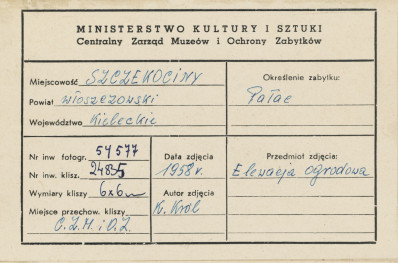 MINISTERSTWO KULTURY I SZTUKI
Centralny Zarząd Muzeów i Ochrony Zabytków
Miejscowość SZCZEKOCINY
Powiat włoszczowski
Województwo Kieleckie
Określenie zabytku:
Pałac
Nr inw fotogr. 54577
Nr inw. klisz. 24835
Wymiary kliszy 6x6
Miejsce przechow. kliszy
C.Z.M. i O.Z.
Data zdjęcia
1958 r.
Autor zdjęcia
K. Król
Przedmiot zdjęcia:
Elewacja ogrodowa